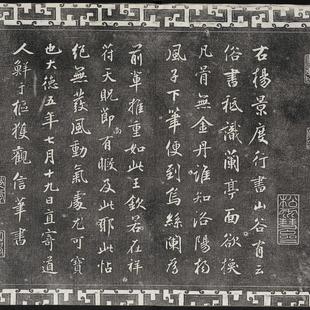 右楊景度行書山谷有云
俗書秪識蘭亭面欲換
凡骨無金丹唯知洛陽楊
風子下筆便到烏絲闌為
前輩推重如此王欽若在祥
符天貺節有暇及此耶此帖
絕無發風動氣處尤可寶
也大德五年七月十九日直寄道
人鮮于樞獲觀信筆書